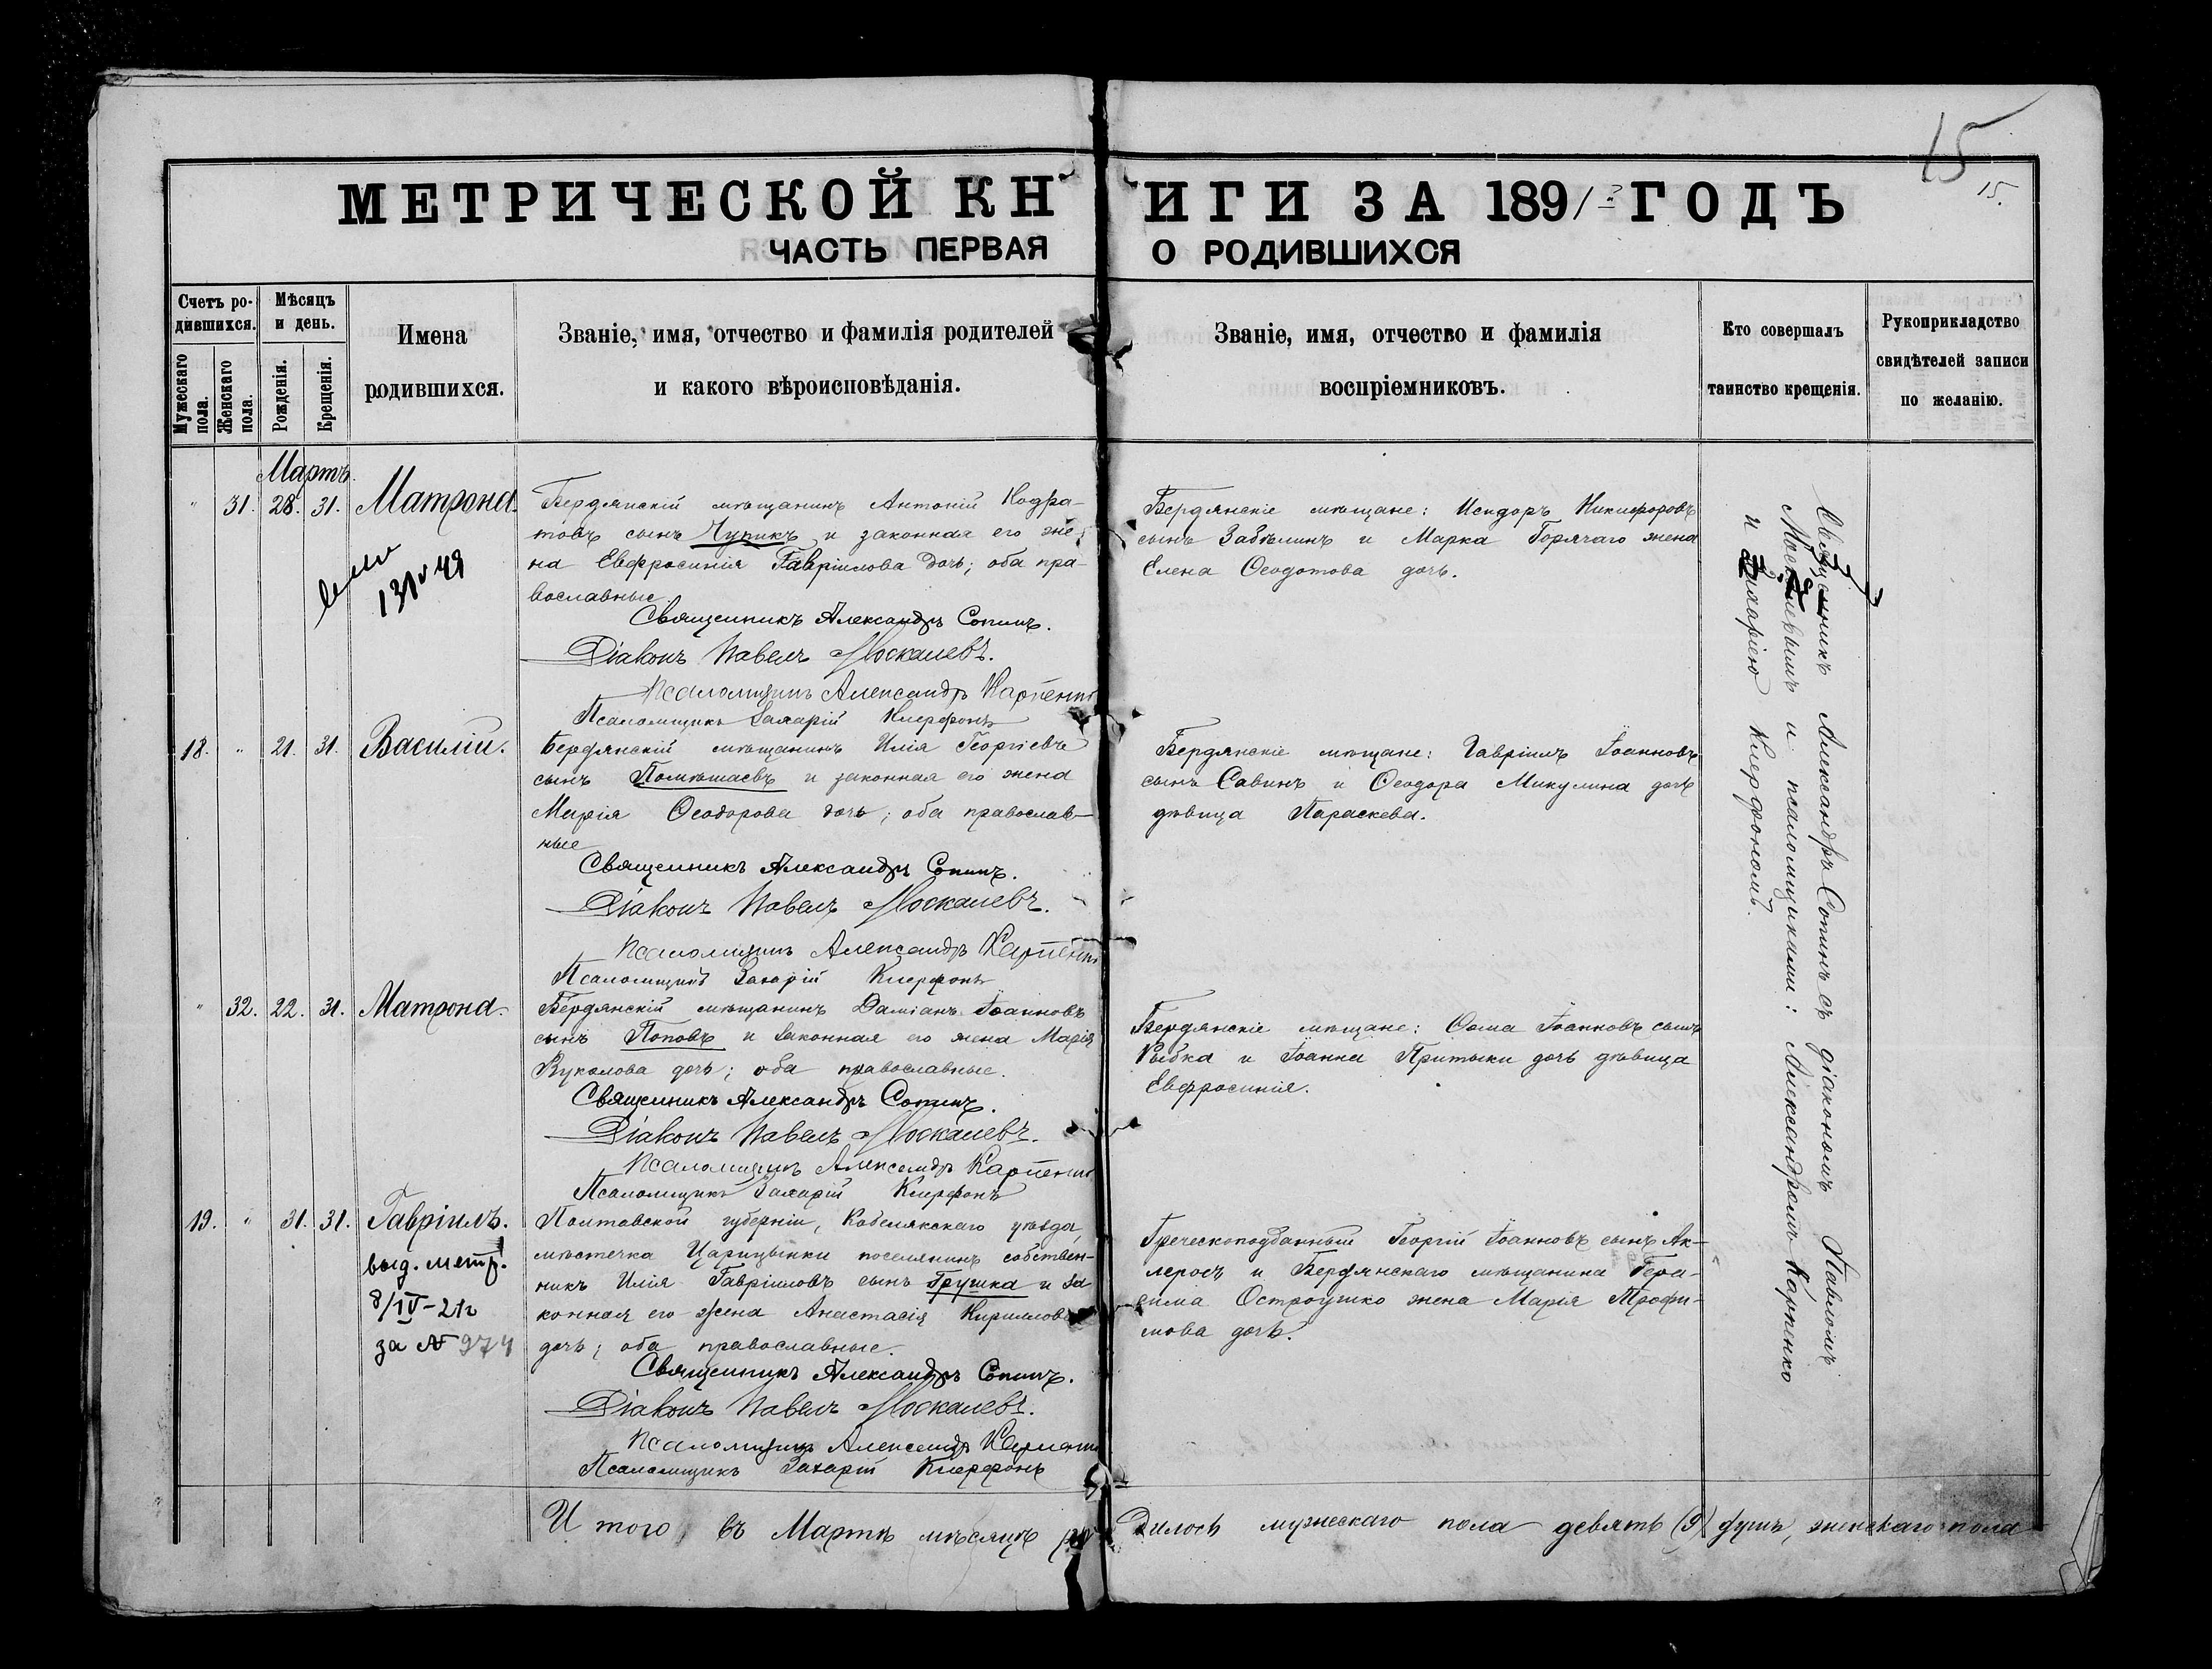 15
15.
МЕТРИЧЕСКОЙ КНИГИ ЗА 1891 ГОДЪ
ЧАСТЬ ПЕРВАЯ О РОДИВШИХСЯ
Счетъ родившихся.
Мужескаго пола.
Женскаго пола.
Мѣсяцъ и день.
Рожденія.
Крещенія.
Имена
родившихся.
Званіе, имя, отчество и фамилія родителей
и какого вѣроисповѣданія.
Званіе, имя, отчество и фамилія
воспріемниковъ.
Кто совершалъ
таинство крещенія.
Рукоприкладство
свидѣтелей записи
по желанію.
Мартъ
" 31. 28. 31. Матрона.
Бердянскій мѣщанинъ Антоній Кодра-
товъ сынъ Чупикъ и законная его же-
на Евфросинія Гавріилова дочь; оба пра-
вославные.
Священникъ Александръ Сопинъ.
Діаконъ Павелъ Москалевъ.
Псаломщикъ Александръ Карпенко
Псаломщикъ Захарій Клерфонъ
Бердянскіе мѣщане: Исидоръ Никифоровъ
сынъ Забѣлинъ и Марка Горячаго жена
Елена Ѳеодотова дочь.
18. " 21. 31. Василій.
Бердянскій мѣщанинъ Илія Георгіевъ
сынъ Помѣшаевъ и законная его жена
Марія Ѳеодорова дочь; оба православ-
ные
Священникъ Александръ Сопинъ.
Діаконъ Павелъ Москалевъ.
Псаломщикъ Александръ Карпенко
Псаломщикъ Захарій Клерфонъ
Бердянскіе мѣщане: Гавріилъ Іоанновъ
сынъ Савинъ и Ѳеодора Микулина дочь
дѣвица Параскева.
" 32. 22. 31. Матрона.
Бердянскій мѣщанинъ Даміанъ Іоанновъ
сынъ Поповъ и законная его жена Марія
Вуколова дочь; оба православные.
Священникъ Александръ Сопинъ.
Діаконъ Павелъ Москалевъ.
Псаломщикъ Александръ Карпенко
Псаломщикъ Захарій Клерфонъ
Бердянскіе мѣщане: Ѳома Іоанновъ сынъ
Рыбка и Іоанна Притыки дочь дѣвица
Евфросинія.
19. " 31. 31. Гавріилъ.
выд. метр.
8/IV-21г
за № 974
Полтавской губерніи, Кобелякскаго уѣзда
мѣстечка Царицынки поселянинъ собствен-
никъ Илія Гавріиловъ сынъ Грушка и за-
конная его жена Анастасія Кириллова
дочь; оба православные.
Священникъ Александръ Сопинъ.
Діаконъ Павелъ Москалевъ.
Псаломщикъ Александръ Карпенко
Псаломщикъ Захарій Клерфонъ
Греческоподданный Георгій Іоанновъ сынъ Ак-
леросъ и Бердянскаго мѣщанина Гера-
сима Остроушко жена Марія Трофи-
мова дочь.
Священникъ Александръ Сопинъ съ діакономъ Павломъ
Москалевымъ и псаломщиками: Александромъ Карпенко
и Захаріею Клерфономъ.
И того, въ Мартѣ мѣсяцѣ родилось мужескаго пола девять (9) душъ, женскаго пола